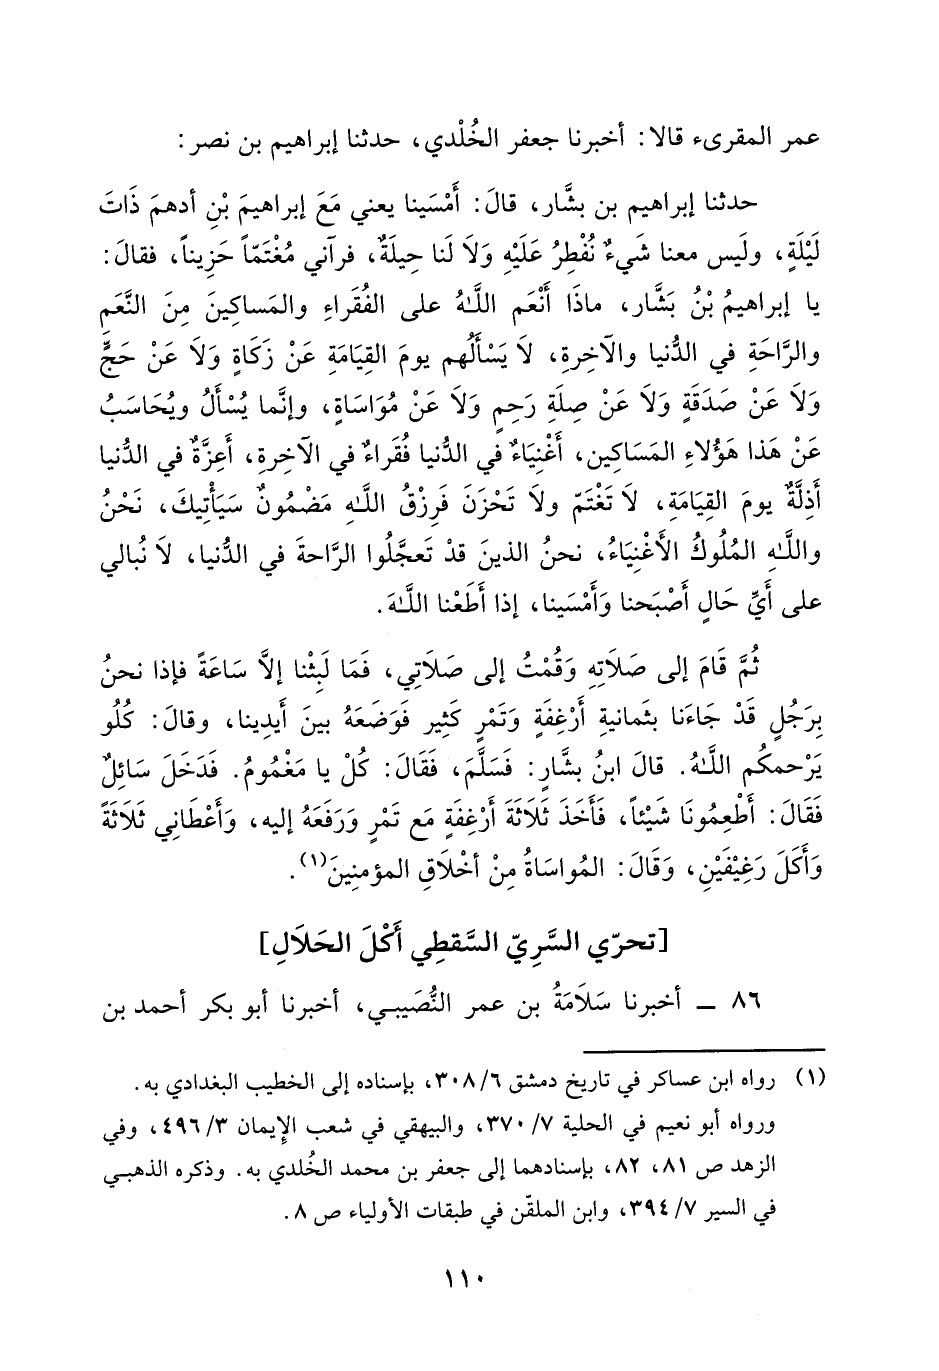 عمر المقرىء قالا: أخبرنا جعفر الخُلْدي، حدثنا إبراهيم بن نصر:
حدثنا إبراهيم بن بشَّار، قالَ: أَمْسَينا يعني مَعَ إبراهيمَ بْنِ أدهمَ ذَاتَ
لَيْلَةٍ، ولَيس معنا شَيءٌ نُفْطِرُ عَلَيْهِ وَلَا لَنا حِيلَةٌ، فرآني مُغْتَمّاً حَزِيناً، فقالَ:
يا إبراهيمُ بْنُ بَشَّار، ماذَا أَنْعَم اللَّهُ على الفُقَراءِ والمَساكِينَ مِنَ النَّعَم
والرَّاحَةِ في الدُّنيا والآخِرةِ، لاَ يَسْأَلُهم يومَ القِيَامَةِ عَنْ زَكَاةٍ وَلَا عَنْ حَجٍّ
وَلَا عَنْ صَدَقَةٍ وَلَا عَنْ صِلَةِ رَحِمٍ وَلَا عَنْ مُوَاسَاةٍ، وإنَّما يُسْأَلُ ويُحَاسَبُ
عَنْ هَذا هَؤُلاءِ المَسَاكِين، أَغْنِيَاءٌ في الدُّنيا فُقَراءٌ في الآخِرةِ، أَعِزَّةٌ في الدُّنيا
أَذِلَّةٌ يومَ القِيَامَةِ، لَا تَغْتَمّ ولَا تَحْزَنَ فَرِزْقُ اللَّهِ مَضْمُونٌ سَيَأْتِيكَ، نَحْنُ
واللَّهِ المُلُوكُ الأَغْنِيَاءُ، نحنُ الذينَ قدْ تَعجَّلُوا الرَّاحةَ في الدُّنيا، لَا نُبالي
على أَيِّ حَالٍ أَصْبَحنا وَأَمْسَينا، إذا أَطَعْنا اللَّهَ.
ثُمَّ قَامَ إلى صَلَاتِهِ وَقُمْتُ إلى صَلَاتِي، فَمَا لَبِثْنا إلاَّ سَاعَةً فإذا نحنُ
بِرَجُلٍ قَدْ جَاءَنا بثَمانيةِ أَرْغِفَةٍ وَتَمْرٍ كَثِيرٍ فَوَضَعَهُ بينَ أَيدِينا، وقالَ: كُلُو
يَرْحمكُم اللَّهُ. قالَ ابنُ بشَّارٍ: فَسَلَّمَ، فَقَالَ: كُلْ يا مَغْمُومُ. فَدَخَلَ سَائِلٌ
فَقَالَ: أَطْعِمُونَا شَيْئاً، فَأَخَذَ ثَلَاثَةَ أَرْغِفَةٍ مَع تَمْرٍ وَرَفَعَهُ إليه، وَأَعْطَاني ثَلَاثَةً
وَأَكَلَ رَغِيْفَيْنِ، وَقَالَ: المُواسَاةُ مِنْ أخْلَاقِ المؤمنِينَ(١).
[تحرّي السَّرِيّ السَّقطِي أَكْلَ الحَلَالِ]
٨٦ ــ أخبرنا سَلَامَةُ بن عمر النُّصَيبـي، أخبرنا أبو بكر أحمد بن
(١) رواه ابن عساكر في تاريخ دمشق ٣٠٨/٦، بإسناده إلى الخطيب البغدادي به.
ورواه أبو نعيم في الحلية ٣٧٠/٧، والبيهقي في شعب الإِيمان ٤٩٦/٣، وفي
الزهد ص ٨١، ٨٢، بإسنادهما إلى جعفر بن محمد الخُلدي به. وذكره الذهبـي
في السير ٣٩٤/٧، وابن الملقّن في طبقات الأولياء ص ٨.
١١٠